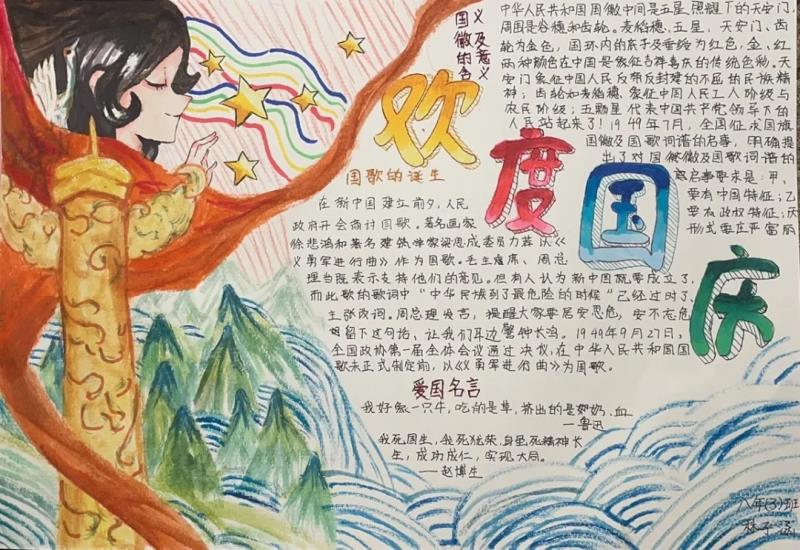 国徽的含
义及意义
中华人民共和国国徽中间是五星照耀下的天安门,
周围是谷穗和齿轮。麦稻穗、五星、天安门、齿
轮为金色,国环内的底子及垂绶为红色,金、红
两种颜色在中国是象征吉祥喜庆的传统色彩。天
安门象征中国人民反帝反封建的不屈的民族精
神;齿轮和麦稻穗象征中国人民工人阶级与
农民阶级;五颗星代表中国共产党领导下的
人民站起来了!1949年7月,全国征求国旗
国徽及国歌词谱的启事,明确提
出了对国徽徽及国歌词谱的
启事要求是:甲,
要有中国特征;乙
要有政权特征;
形式要庄严富丽
欢度国庆
国歌的诞生
在新中国建立前夕,人民
政府开会商讨国歌。著名画家
徐悲鸿和著名建筑学家梁思成委员力荐以《
义勇军进行曲》作为国歌。毛主席、周总
理当既表示支持他们的意见。但有人认为新中国就要成立了,
而此歌的歌词中"中华民族到了最危险的时候"已经过时了,
主张改词。周总理发言,提醒大家要居安思危,安不忘危
留下这句话、让我们耳边警钟长鸣。1949年9月27日,
全国政协第一届全体会议通过决议,在中华人民共和国国
歌未正式制定前,以《义勇军进行曲》为国歌。
爱国名言
我好像一只牛,吃的是草,挤出的是奶、血
—鲁迅
我死国生,我死犹荣,身虽死精神长
生,成功成仁,实现大同。
——赵博生
八年(3)班
林子涵